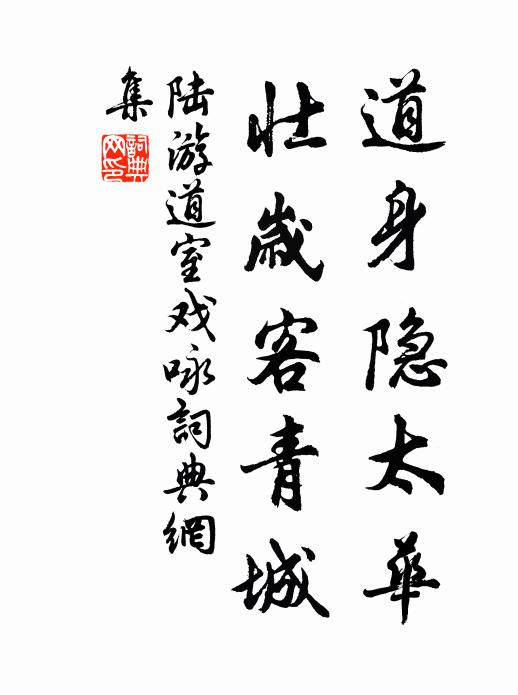 道身隐太华
壮岁客青城
陆游道室戏咏詞典網
集
詞典
网印